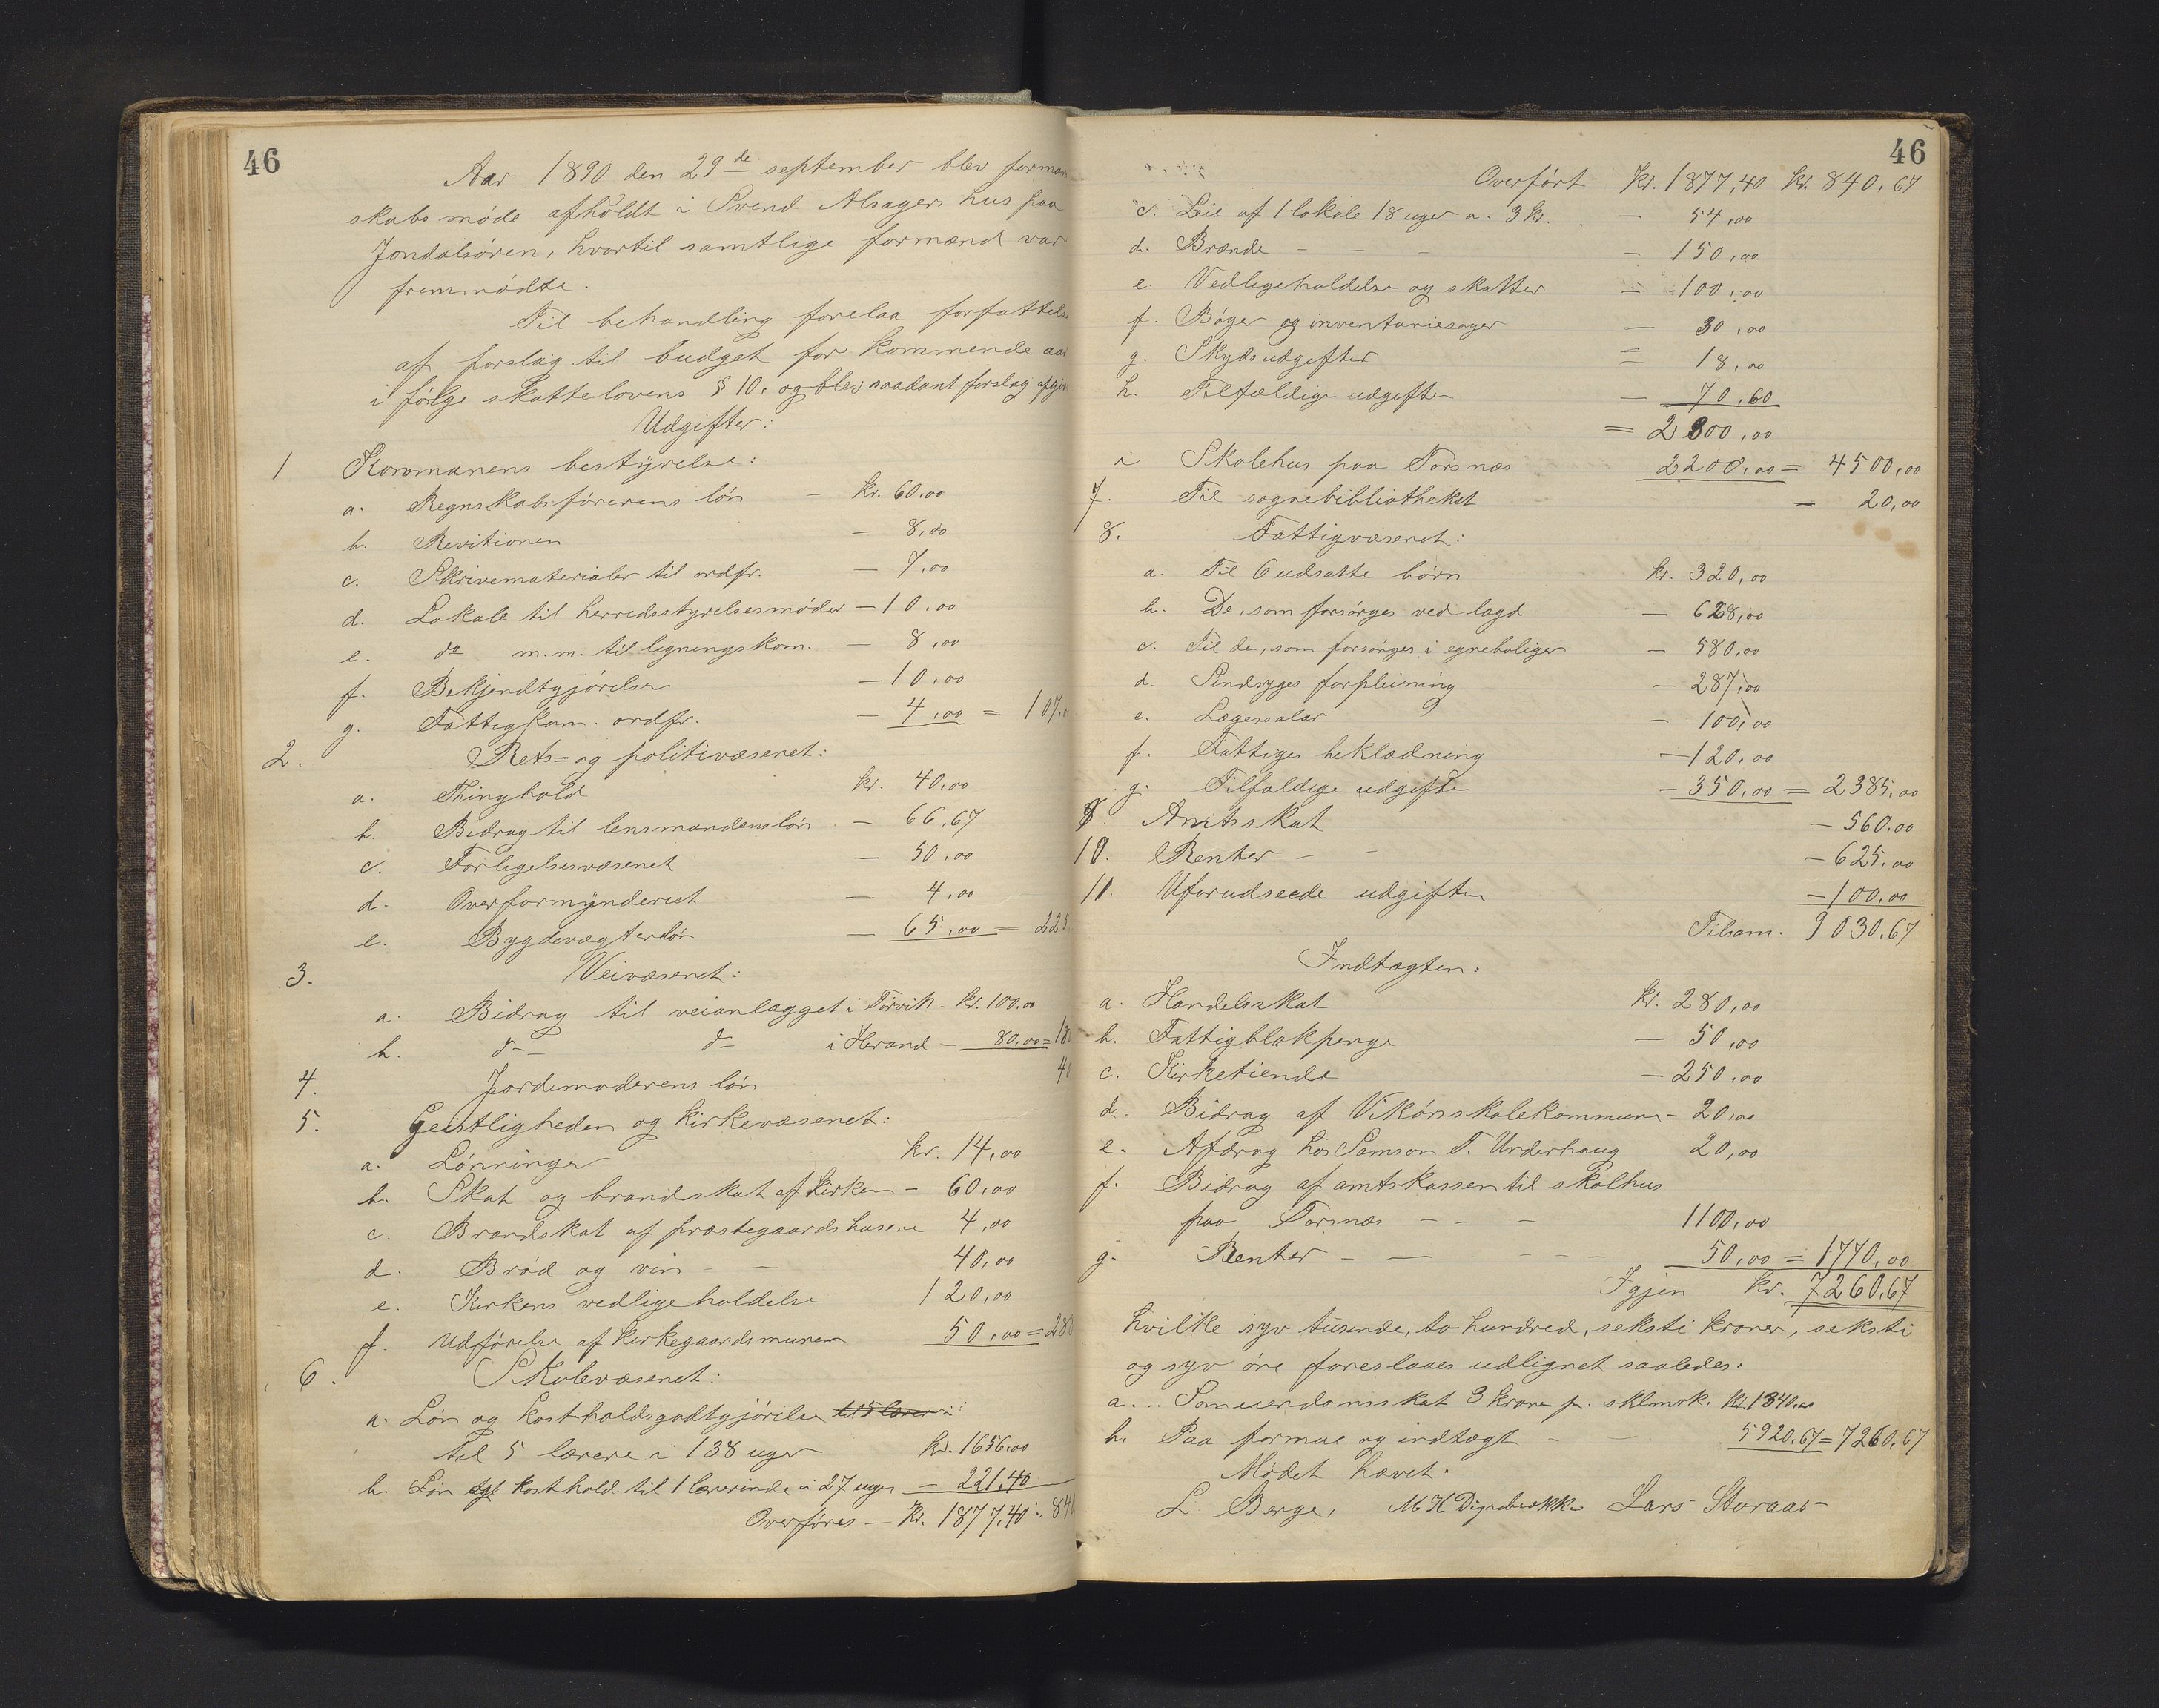 46
Aar 1890 den 29de september blev forman
skabsmøde afholdt i Svend Alsagers hus paa
Jondalsøren, hvortil samtlige formænd var
fremmødte.
Til behandling forelaa forfattels
af forslag til budget for kommende aar
i følge skattelovens § 10. og blev saadant forslag afgjo
Udgifter:
1 Kommunens bestyrelse:
a. Regnskabsførerens løn – kr. 60,00
b. Revitionen — 8,00
c. Skrivematerialer til ordfr. — 7,00
d. Lokale til herredsstyrelsesmøder — 10,00
e. do m.m. til ligningskom. — 8,00
f. Bekjendtgjørelser — 10,00
g. Fattigkom. ordfr. — 4,00 = 107,0
2. Rets= og politivæsenet:
a. Thinghold kr. 40,00
b. Bidrag til lensmandensløn — 66,67
c. Forligelsesvæsenet — 50,00
d. Overformynderiet — 4,00
e. Bygdevægterløn — 65,00 = 225
3. Veivæsenet:
a. Bidrag til veianlægget i Torvik – kr. 100.00
b. do do i Herand – 80,00 = 18
4. Jordemoderens løn 40
5. Geistligheden og kirkevæsenet:
a. Lønninger kr. 14,00
b. Skat og brandskat af kirken – 60,00
c. Brandskat af præstegaardshusene 4,00
d. Brød og vin – — 40,00
e. Kirkens vedligeholdelse 120,00
f. Udførelse af kirkegaardsmuren 50,00 = 288
6. Skolevæsenet:
a. Løn og kostholdsgodtgjørelse til 5 lærer i
til 5 lærere i 138 uger kr. 1656.00
b. Løn og kosthold til 1 lærerinde i 27 uger — 221.40
Overføres — Kr. 1877,40 : 840
46
Overført Kr. 1877,40 kr. 840,67
c. Leie af 1 lokale 18 uger a. 3 kr. — 54,00
d. Brænde – – — 150,00
e. Vedligeholdelse og skatter — 100,00
f. Bøger og inventariesager — 30,00
g. Skydsudgifter = 18,00
h. Tilfældige udgifter — 70,60
= 2300,00
i Skolehus paa Torsnæs 2200,00 = 4500,00
7. Til sognebibliotheket — 20,00
8. Fattigvæsenet:
a. Til 6 udsatte børn kr. 320,00
b. De, som forsørges ved lægd — 628,00
c. Til de, som forsørges i egneboliger — 580,00
d. Sindsyges forpleining — 287,00
e. Lægessalær — 100,00
f. Fattiges beklædning — 120,00
g. Tilfældige udgifter — 350,00 = 2385,00
9. Amtsskat — 560,00
10. Renter – – — 625,00
11. Uforudseede udgifter — 100,00
Tilsam. 9030,67
Indtægten:
a. Handelsskat kr. 280,00
b. Fattigblokpenge — 50,00
c. Kirketiende — 250,00
d. Bidrag af Vikørs skolekommune – 20,00
e. Afdrag hos Samson T. Underhaug 20,00
f. Bidrag af amtskassen til skolhus
paa Torsnæs – – – 1100,00
g. Renter – — – – – 50,00 = 1770,00
Igjen kr. 7260,67
hvilke syv tusende, to hundred, seksti kroner, seksti
og syv øre foreslaaes udlignet saaledes:
a. Som eiendomsskat 3 kroner pr. sklmrk. kr. 1340,00
b. Paa formue og indtægt – — 5920,67 = 7260,67
Mødet hævet.
L Berge, M H Digrabrække Lars Storaas